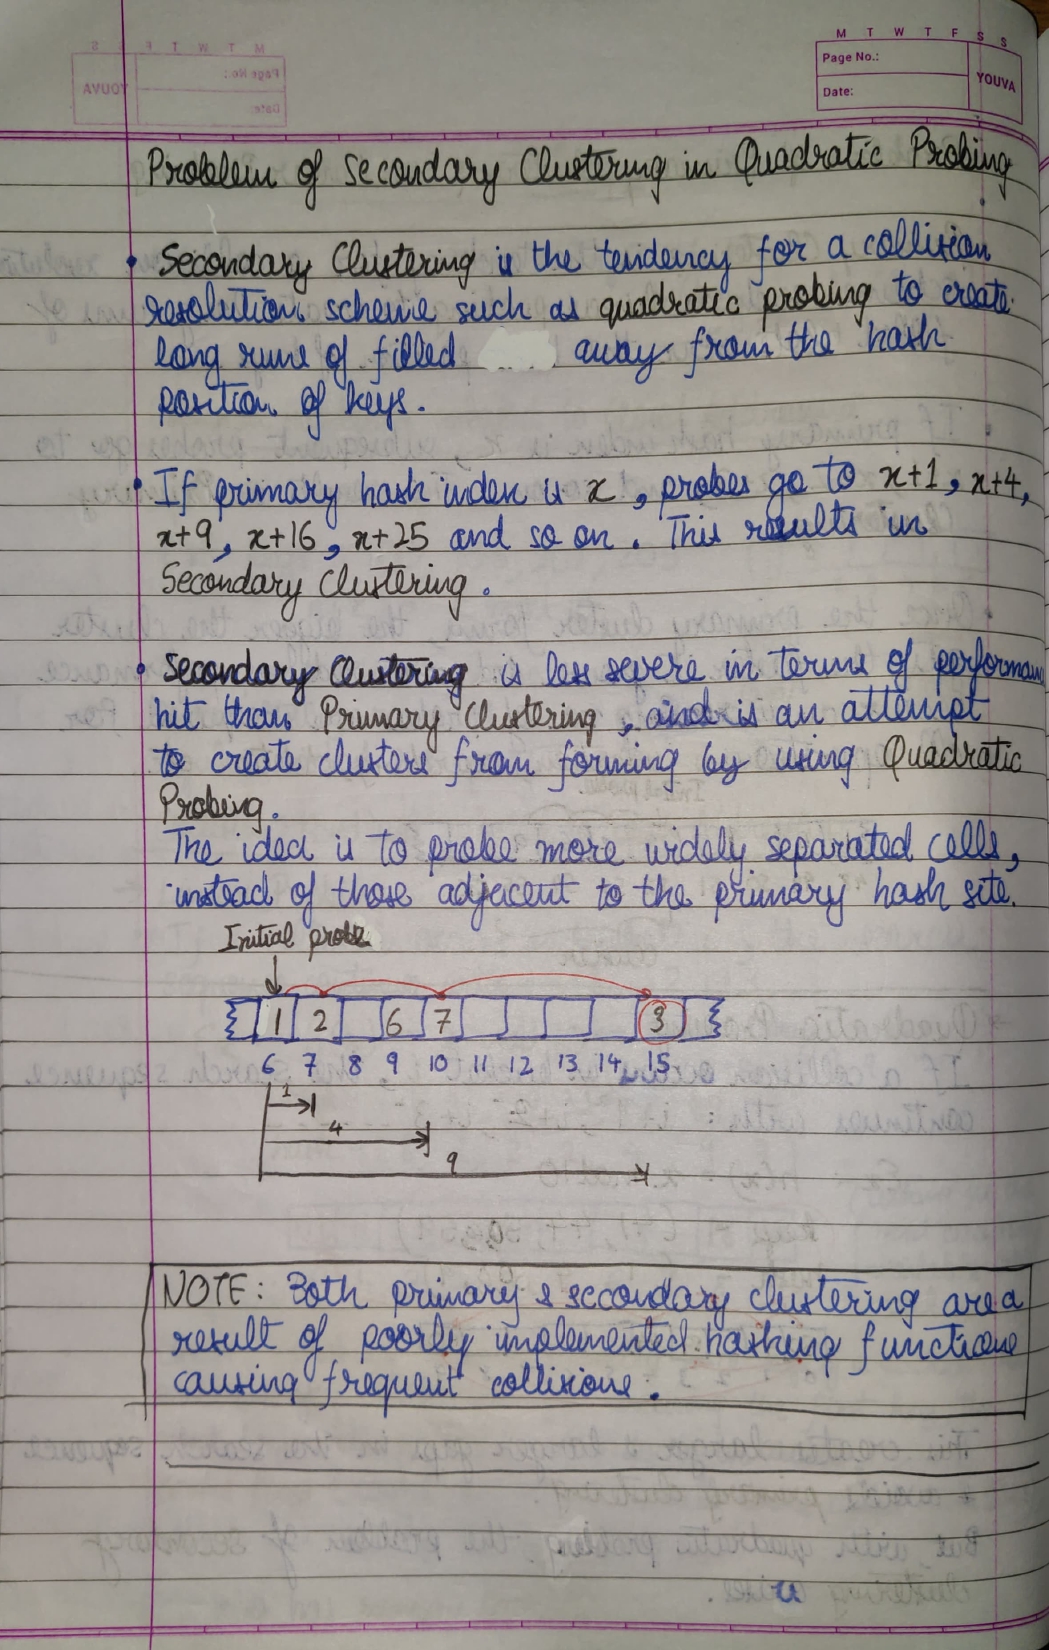 M T W T F S S
Page No.:
Date:
YOUVA
Problem of Secondary Clustering in Quadratic Probing
• Secondary Clustering is the tendency for a collision
resolution scheme such as quadratic probing to create
long runs of filled away from the hash
position of keys.
• If primary hash index is x, probes go to x+1, x+4,
x+9, x+16, x+25 and so on. This results in
Secondary Clustering.
• Secondary Clustering is less severe in terms of performan
hit than Primary Clustering, and is an attempt
to create clusters from forming by using Quadratic
Probing.
The idea is to probe more widely separated cells,
instead of those adjacent to the primary hash site.
Initial probe
1 2 6 7 3
6 7 8 9 10 11 12 13 14 15
1
4
9
NOTE: Both primary & secondary clustering are a
result of poorly implemented hashing functions
causing frequent collisions.